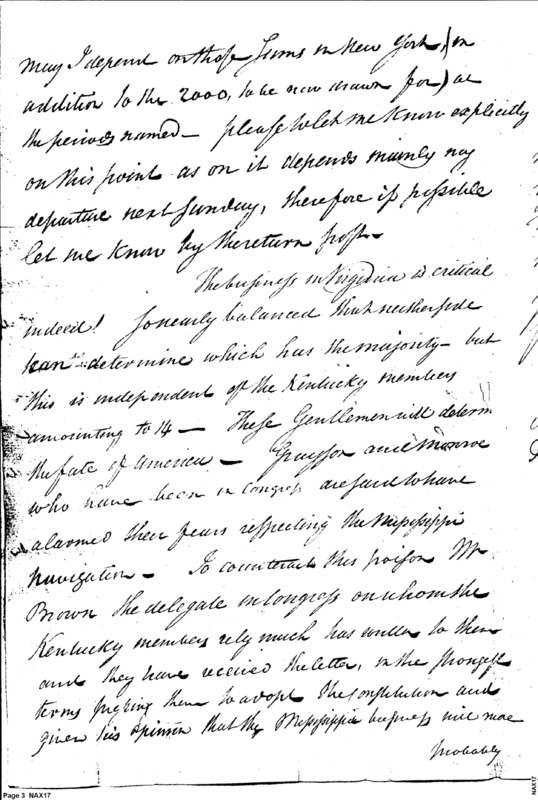 may I depend on those sums in New York, (in
addition to the 2000, to be now drawn for) at
the periods named— please to let me know explicitly
on this point as on it depends mainly my
departure next Sunday, therefore if possible
let me know by the return post—
The business in Virginia is critical
indeed! So nearly balanced that neither side
can determine which has the majority— but
this is independent of the Kentucky members
amounting to 14— These Gentlemen will determ
the fate of America— Grayson and Monroe
who have been in Congress are said to have
alarmed their fears respecting the Mississippi
navigation— To counteract this poison Mr
Brown the delegate in Congress on whom the
Kentucky members rely much has written to them
and they have received the letter, in the strongest
terms urging them to adopt the constitution and
given his opinion that the Mississippi business will more
probably
Page 3 NAX17
NAX17